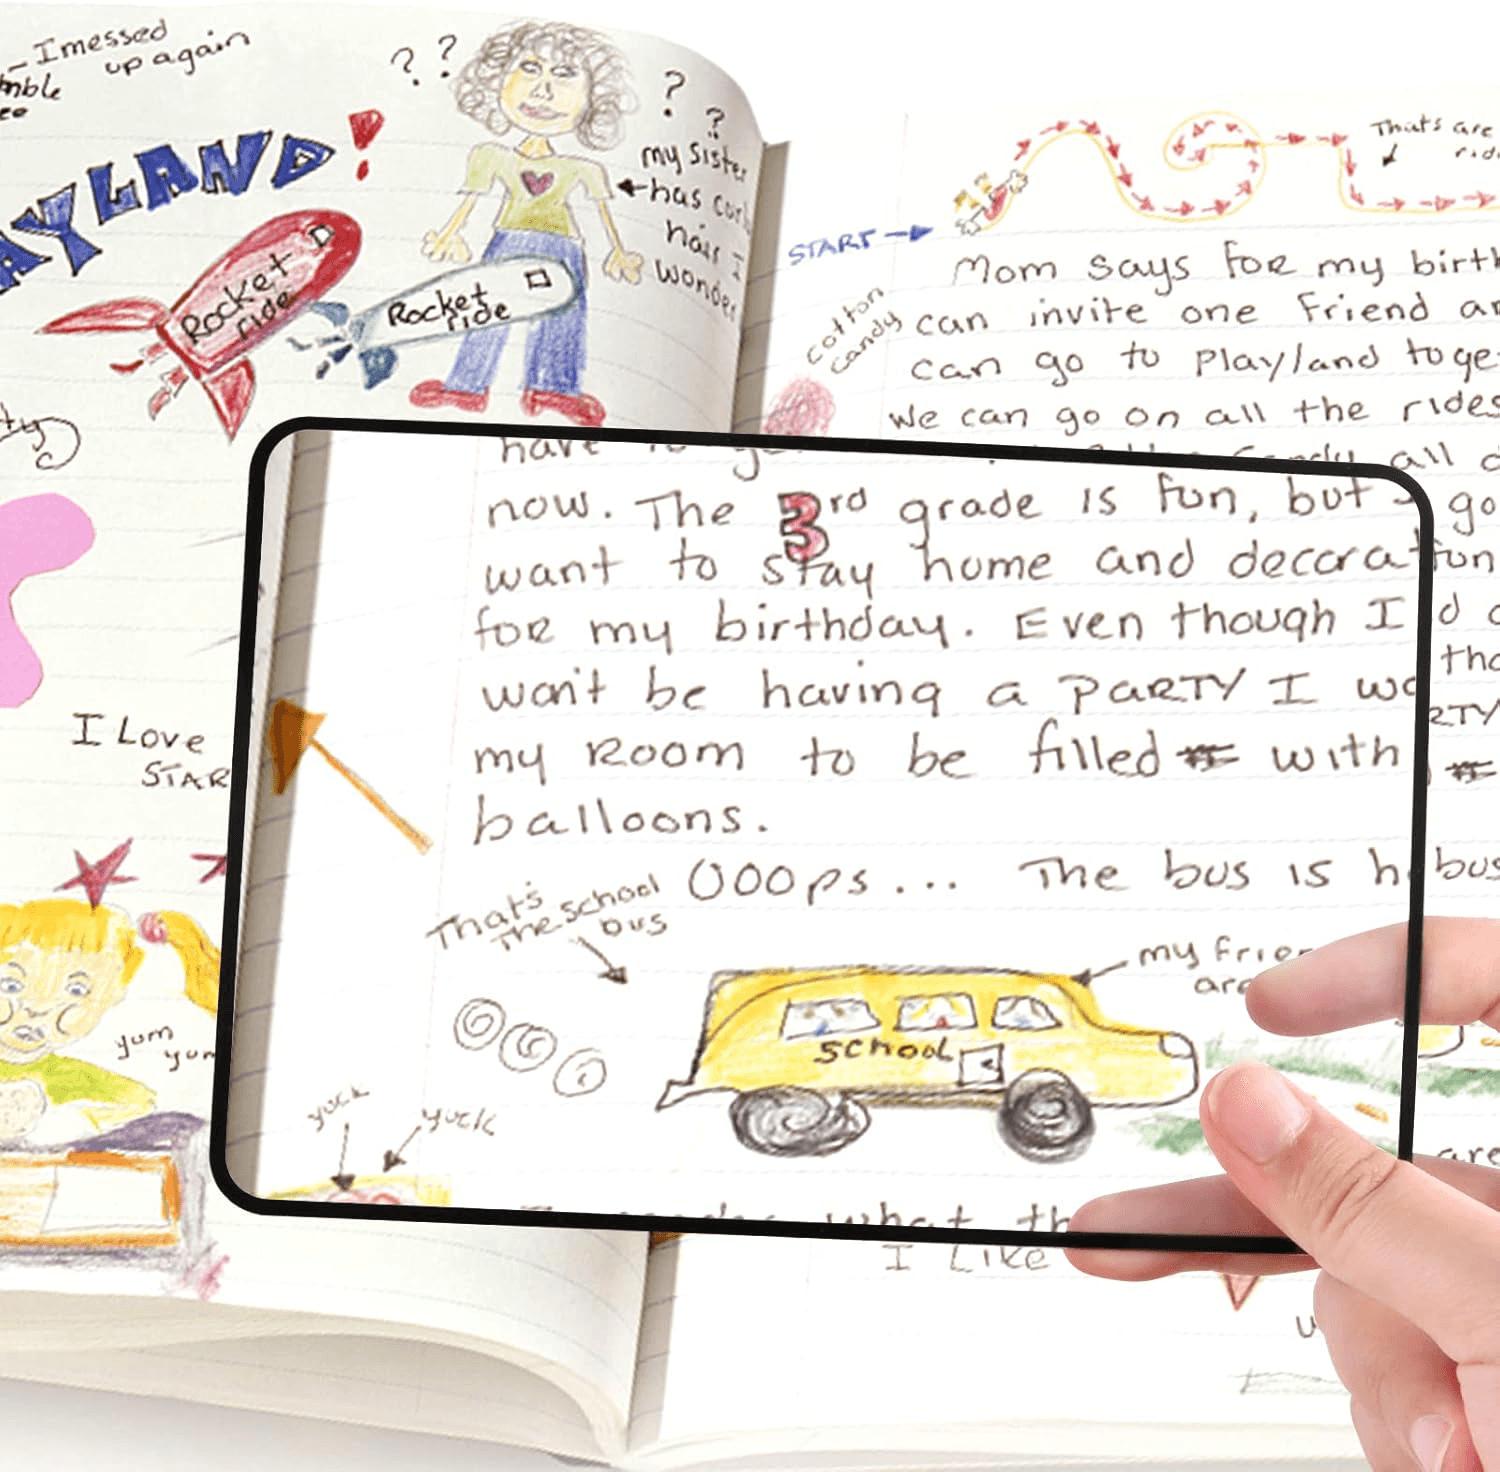 I messed
up again
? ?
? ?
my sister
has
hair I
wonder
AYLAND!
Rocket
ride
Rocket
ride
I Love
STAR
yum
yum
Thats are
START
cotton
candy
Mom says for my birth
can invite one friend
can go to Playland toge
we can go on all the rides
all
have
now. The 3rd grade is fun, but
go
want to stay home and decora
fun
for my birthday. Even though I
won't be having a PARTY I
RTY
my Room to be filled with
balloons.
OOOps... The bus is
bus
That's
the school
bus
my frie
are
SCHOOL
yuck
yuck
are
what th
I Like